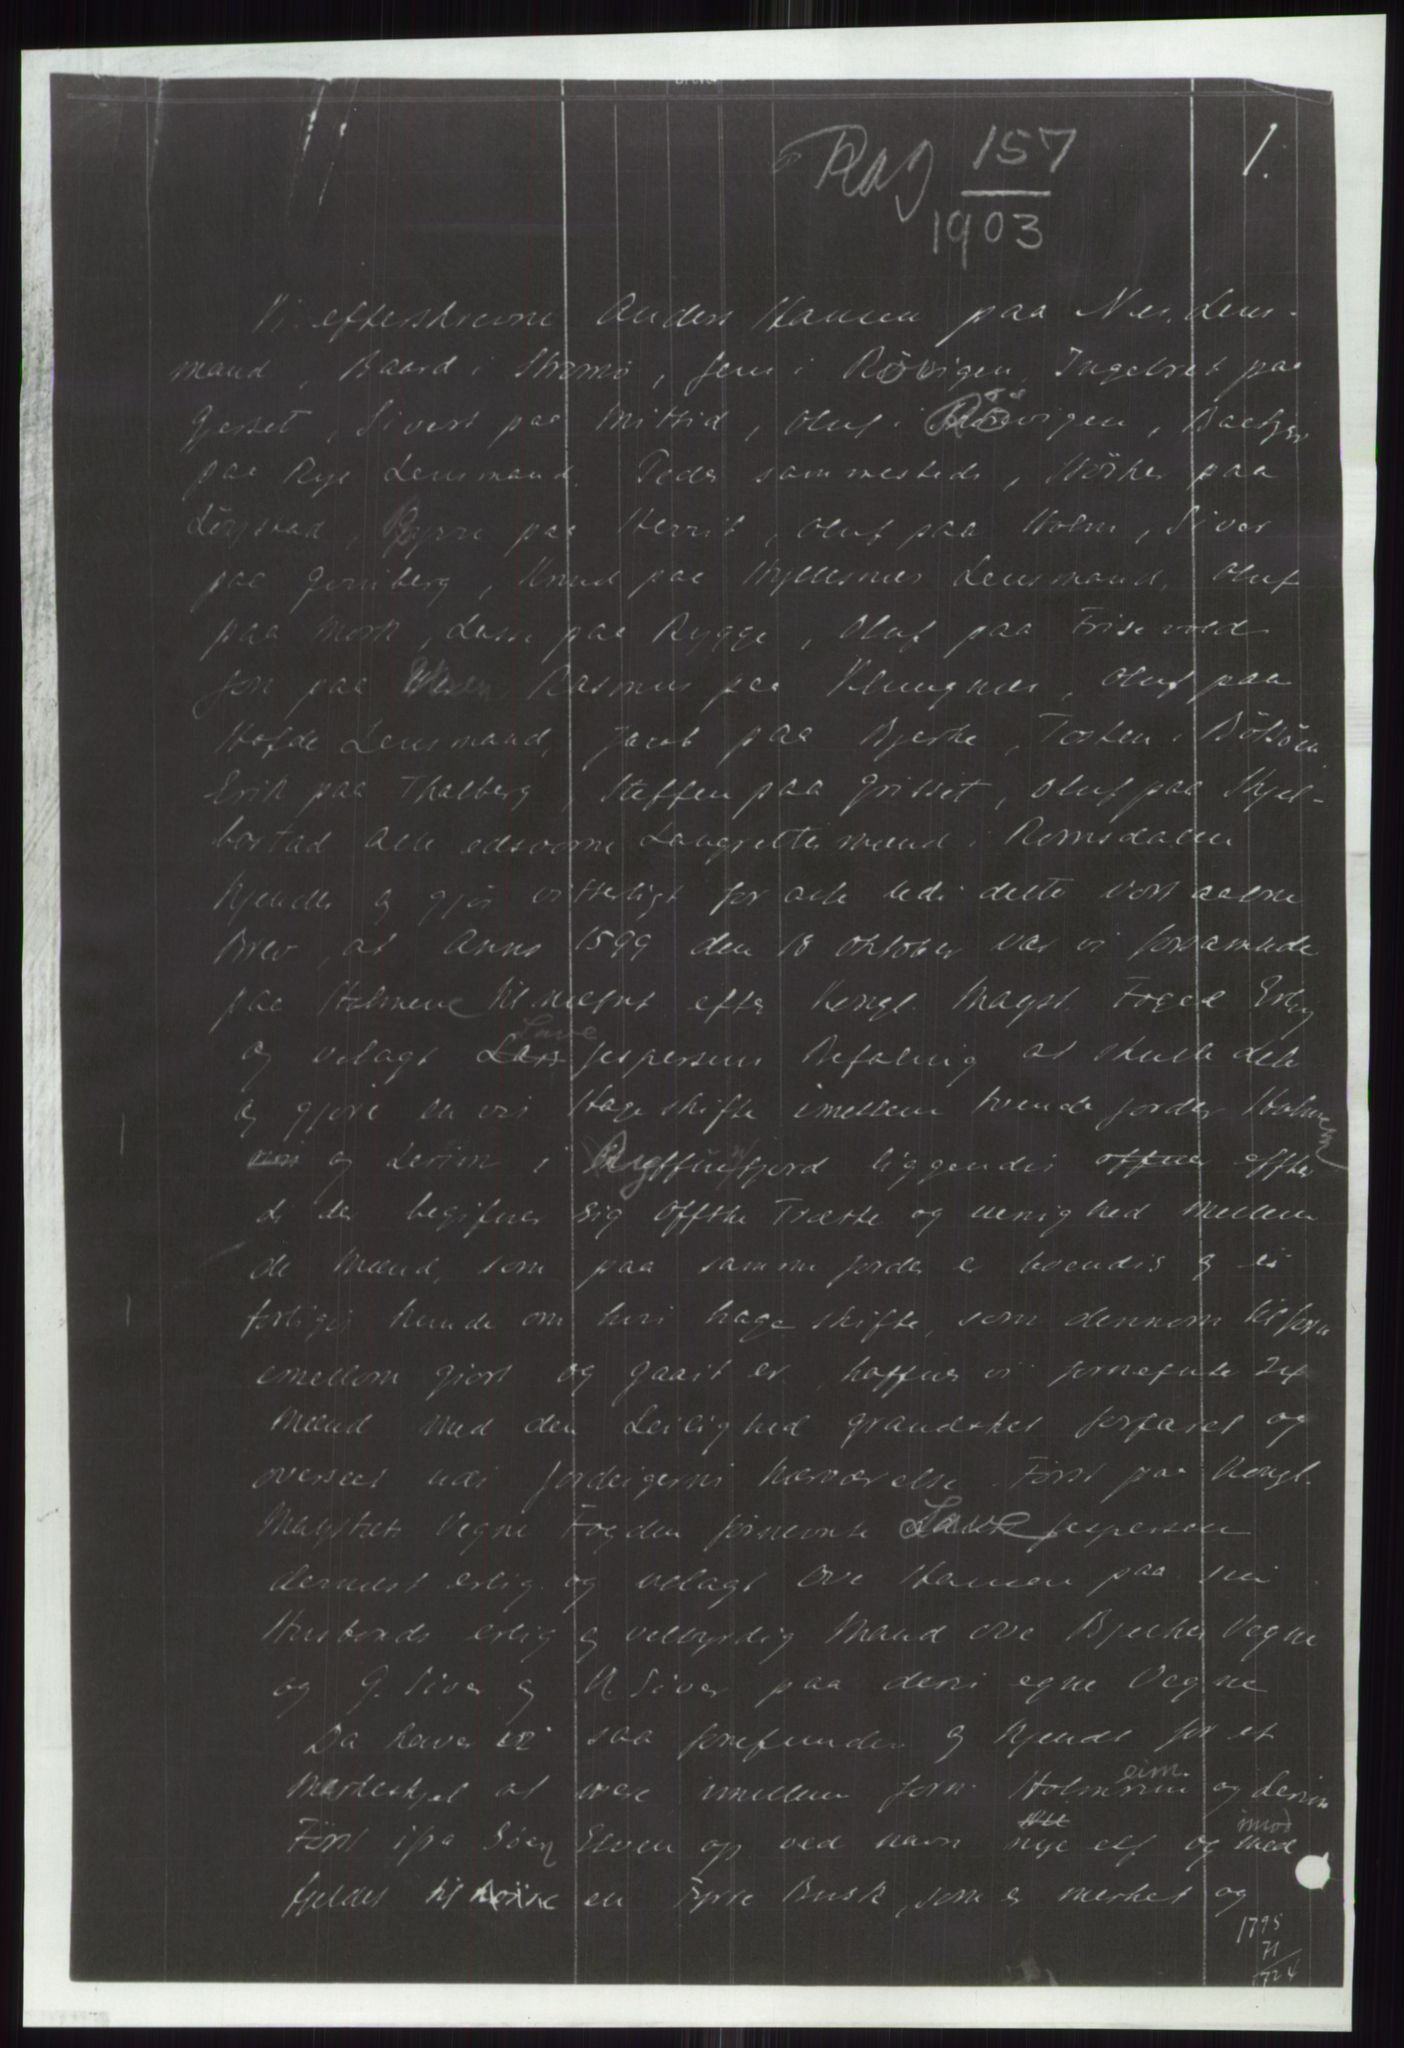 Rag 157
1903
1.
Vi efterskrevne Anders Hansen paa Nes, Lens-
mand, Baard i Strømø, Jens i Rövigen, Ingebret paa
Gjesset, Sivert paa Mittid, Oluf i Rövigen,
paa Rye Lensmand. Peder sammesteds, Störker paa
paa Herrit, Oluf paa Holm, Siver
paa Grinberg, Knud paa Hyllesnes Lensmand, Oluf
paa Mork, Lasse paa Rygge, Oluf paa Frisevold
Jon paa Rasmus paa Klungnes, Oluf paa
Hofde Lensmand, Jacob paa Bjerke, Tosten i Bölsöen
Erik paa Thalberg, Steffen paa Grisset, Oluf paa Skjel-
bostad alle edsvorne Laugrettismænd i Romsdalen
kjendes og gjør vitterligt for alle udi dette vort aabne
Brev, at Anno 1599 den 18 oktober var vi forsamlede
paa Holmene tilnefnt efter Kongl. Mayst. Foged Erlig
og velagt Lars Lave Jespersens Befaling at skulle dele
og gjøre en ret Hage skifte imellem tvende jorder Holm
og Lerim i fjord liggendis effter
di der begifver sig offte Trætte og uenighed mellem
de Mænd, som paa samme jorder er boendis og ei
forliges kunde om hvis hage skifte, som dennom tilforn
emellom giort og gaait er, haffuer vi fornefnte 24
Mænd med den Leilighed grandsket forfaret og
overseet udi Jordeigernis nærværelse. Först paa Kongl.
Maystets Vegne Fogden fornevnte Lave Jespersen
dernest erlig og velagt Ove Hansen paa sin
Husbonds erlig og velbyrdig Mand Ove Bjelkes Vegne
og G. Siver og N. Siver paa deris egne Vegne
Da haver vi saa forefunden og kjendt for et
Merkeskjel at vere imellem forn. Holmeim og Lerim
Först ifra Söen Elven op ved navn nye elf og imod
fjeldet til en Fyrre Busk, som er merket og
1795
71
1724